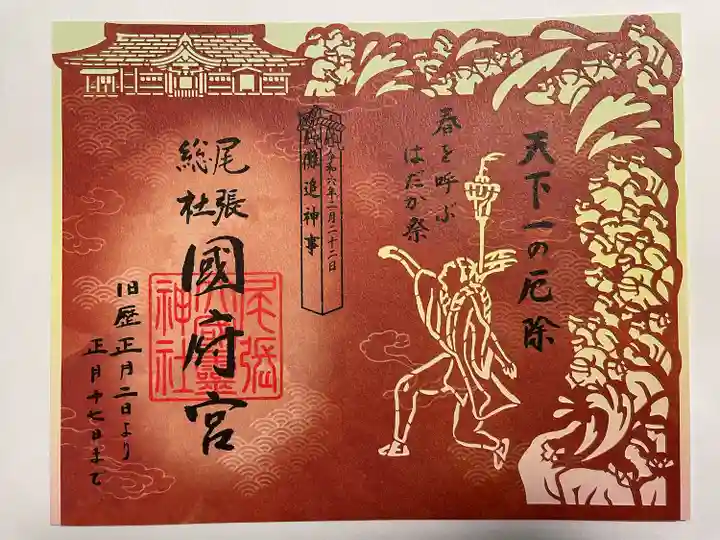 天下一の厄除
春を呼ぶ
はだか祭
令和六年二月二十二日
儺追神事
尾張
総社
國府宮
尾張
神社
旧歴正月二日より
正月十七日まで